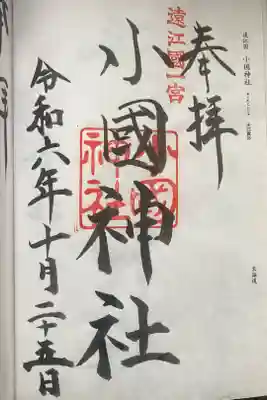 遠江國 小國神社
奉拝
遠江國一宮
小國神社
小國神社
令和六年十月二十五日
東海道